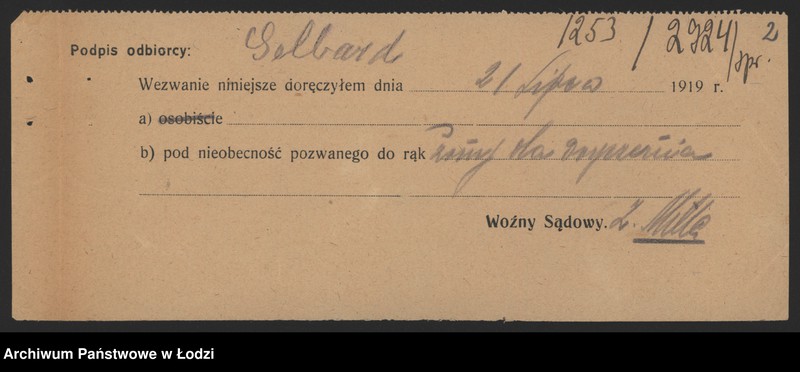 1253 / 2924/spr. 2
Podpis odbiorcy: Gelbard
Wezwanie niniejsze doręczyłem dnia 21 Lipca 1919 r.
a) osobiście
b) pod nieobecność pozwanego do rąk żony dla doręczenia
Woźny Sądowy.
Archiwum Państwowe w Łodzi